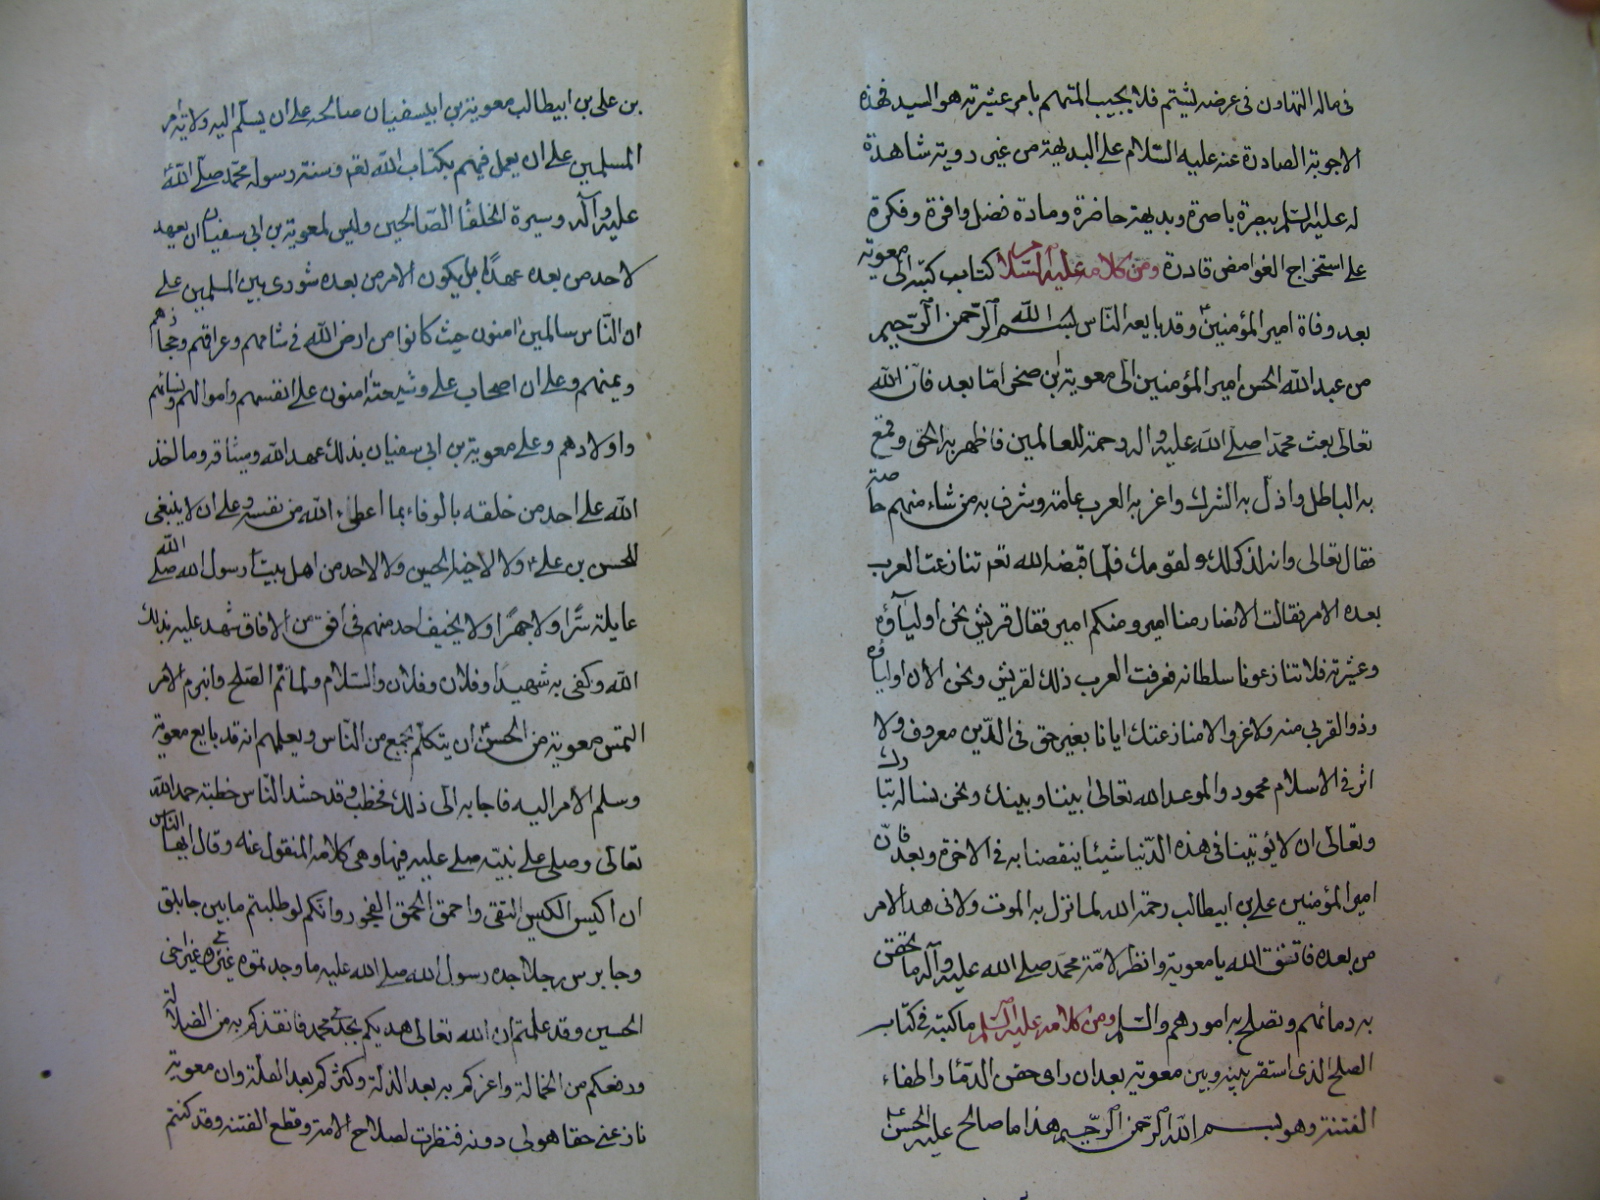 فى ماله التهاون فى عرضه يشتم فلا يجيب المتهم بامر عشيرته هو السيد فهذه
الاجوبة الصادرة عنه عليه السلام على البديهة من غير روية شاهدة
له عليه السلم ببصيرة باصرة وبديهة حاضرة ومادة فضل وافرة وفكرة
على استخراج الغوامض قادرة ومن كلامه عليه السلام كتاب كتبه الى معوية
بعد وفاة امير المؤمنين وقد بايعه الناس بسم الله الرحمن الرحيم
من عبد الله الحسن امير المؤمنين الى معوية بن صخر اما بعد فان الله
تعالى بعث محمدا صلى الله عليه واله رحمة للعالمين فاظهر به الحق وقمع
به الباطل واذل به الشرك واعز به العرب عامة وشرف به من شاء منهم خاصة
فقال تعالى وانه لذكر لك ولقومك فلما قبضه الله تعم تنازعت العرب
بعده الامر فقالت الانصار منا امير ومنكم امير فقال قريش نحن اولياؤه
وعشيرته فلا تنازعونا سلطانه فعرفت العرب ذلك لقريش ونحن الان اولياؤه
وذو القربى منه ولا غرو الا منازعتك ايانا بغير حق فى الدين معروف ولا
اثر فى الاسلام محمود والموعد الله تعالى بيننا وبينك ونحن نساله تبارك
وتعالى ان لا يؤتينا فى هذه الدنيا شيئا ينقصنا به فى الاخرة وبعد فان
امير المؤمنين على بن ابيطالب رحمة الله لما نزل به الموت ولانى هذا الامر
من بعده فاتق الله يا معوية وانظر لامة محمد صلى الله عليه وآله ما تحقن
به دمائهم وتصلح به امورهم والسلم ومن كلامه عليه السلم ما كتبه فى كتاب
الصلح الذى استقر بينه وبين معوية بعد ان راى حقن الدماء واطفاء
الفتنة وهو بسم الله الرحمن الرحيم هذا ما صالح عليه الحسن
بن على بن ابيطالب معوية بن ابيسفيان صالحه على ان يسلم اليه ولاية امر
المسلمين على ان يعمل فيهم بكتاب الله تعم وسنة رسوله محمد صلى الله
عليه وآله وسيرة الخلفاء الصالحين وليس لمعوية بن ابى سفيان ان يعهد
لاحد من بعده عهدا بل يكون الامر من بعده شورى بين المسلمين على
ان الناس سالمين امنون حيث كانوا من ارض الله فى شامهم وعراقهم وحجازهم
ويمنهم وعلى ان اصحاب على وشيعته امنون على انفسهم واموالهم ونسائهم
واولادهم وعلى معوية بن ابى سفيان بذلك عهد الله وميثاقه وما اخذ
الله على احد من خلقه بالوفاء بما اعطى الله من نفسه وعلى ان لا ينبغى
للحسن بن على ولا لاخيه الحسين ولا لاحد من اهل بيت رسول الله صلى الله
عايلة سرا ولا جهرا ولا يخيف احد منهم فى افق من الافاق شهد عليه بذلك
الله وكفى به شهيدا وفلان وفلان والسلام ولما تم الصلح وانبرم الامر
التمس معوية من الحسن ان يتكلم بجمع من الناس ويعلمهم انه قد بايع معوية
وسلم الامر اليه فاجابه الى ذلك فخطب وقد حشد الناس خطبة حمد الله
تعالى وصلى على نبيه صلى عليه فيها وهى كلامه المنقول عنه وقال ايها الناس
ان اكيس الكيس التقى واحمق الحمق الفجور وانكم لو طلبتم ما بين جابلق
وجابرس رجلا جده رسول الله صلى الله عليه ما وجدتموه غيرى غير اخى
الحسين وقد علمتم ان الله تعالى هديكم بجدى محمد فانقذكم به من الضلالة
ورفعكم من الخمالة واعزكم به بعد الذلة وكثركم بعد القلة وان معوية
نازعنى حقا هو لى دونه فنظرت لصلاح الامة وقطع الفتنه وقد كنتم